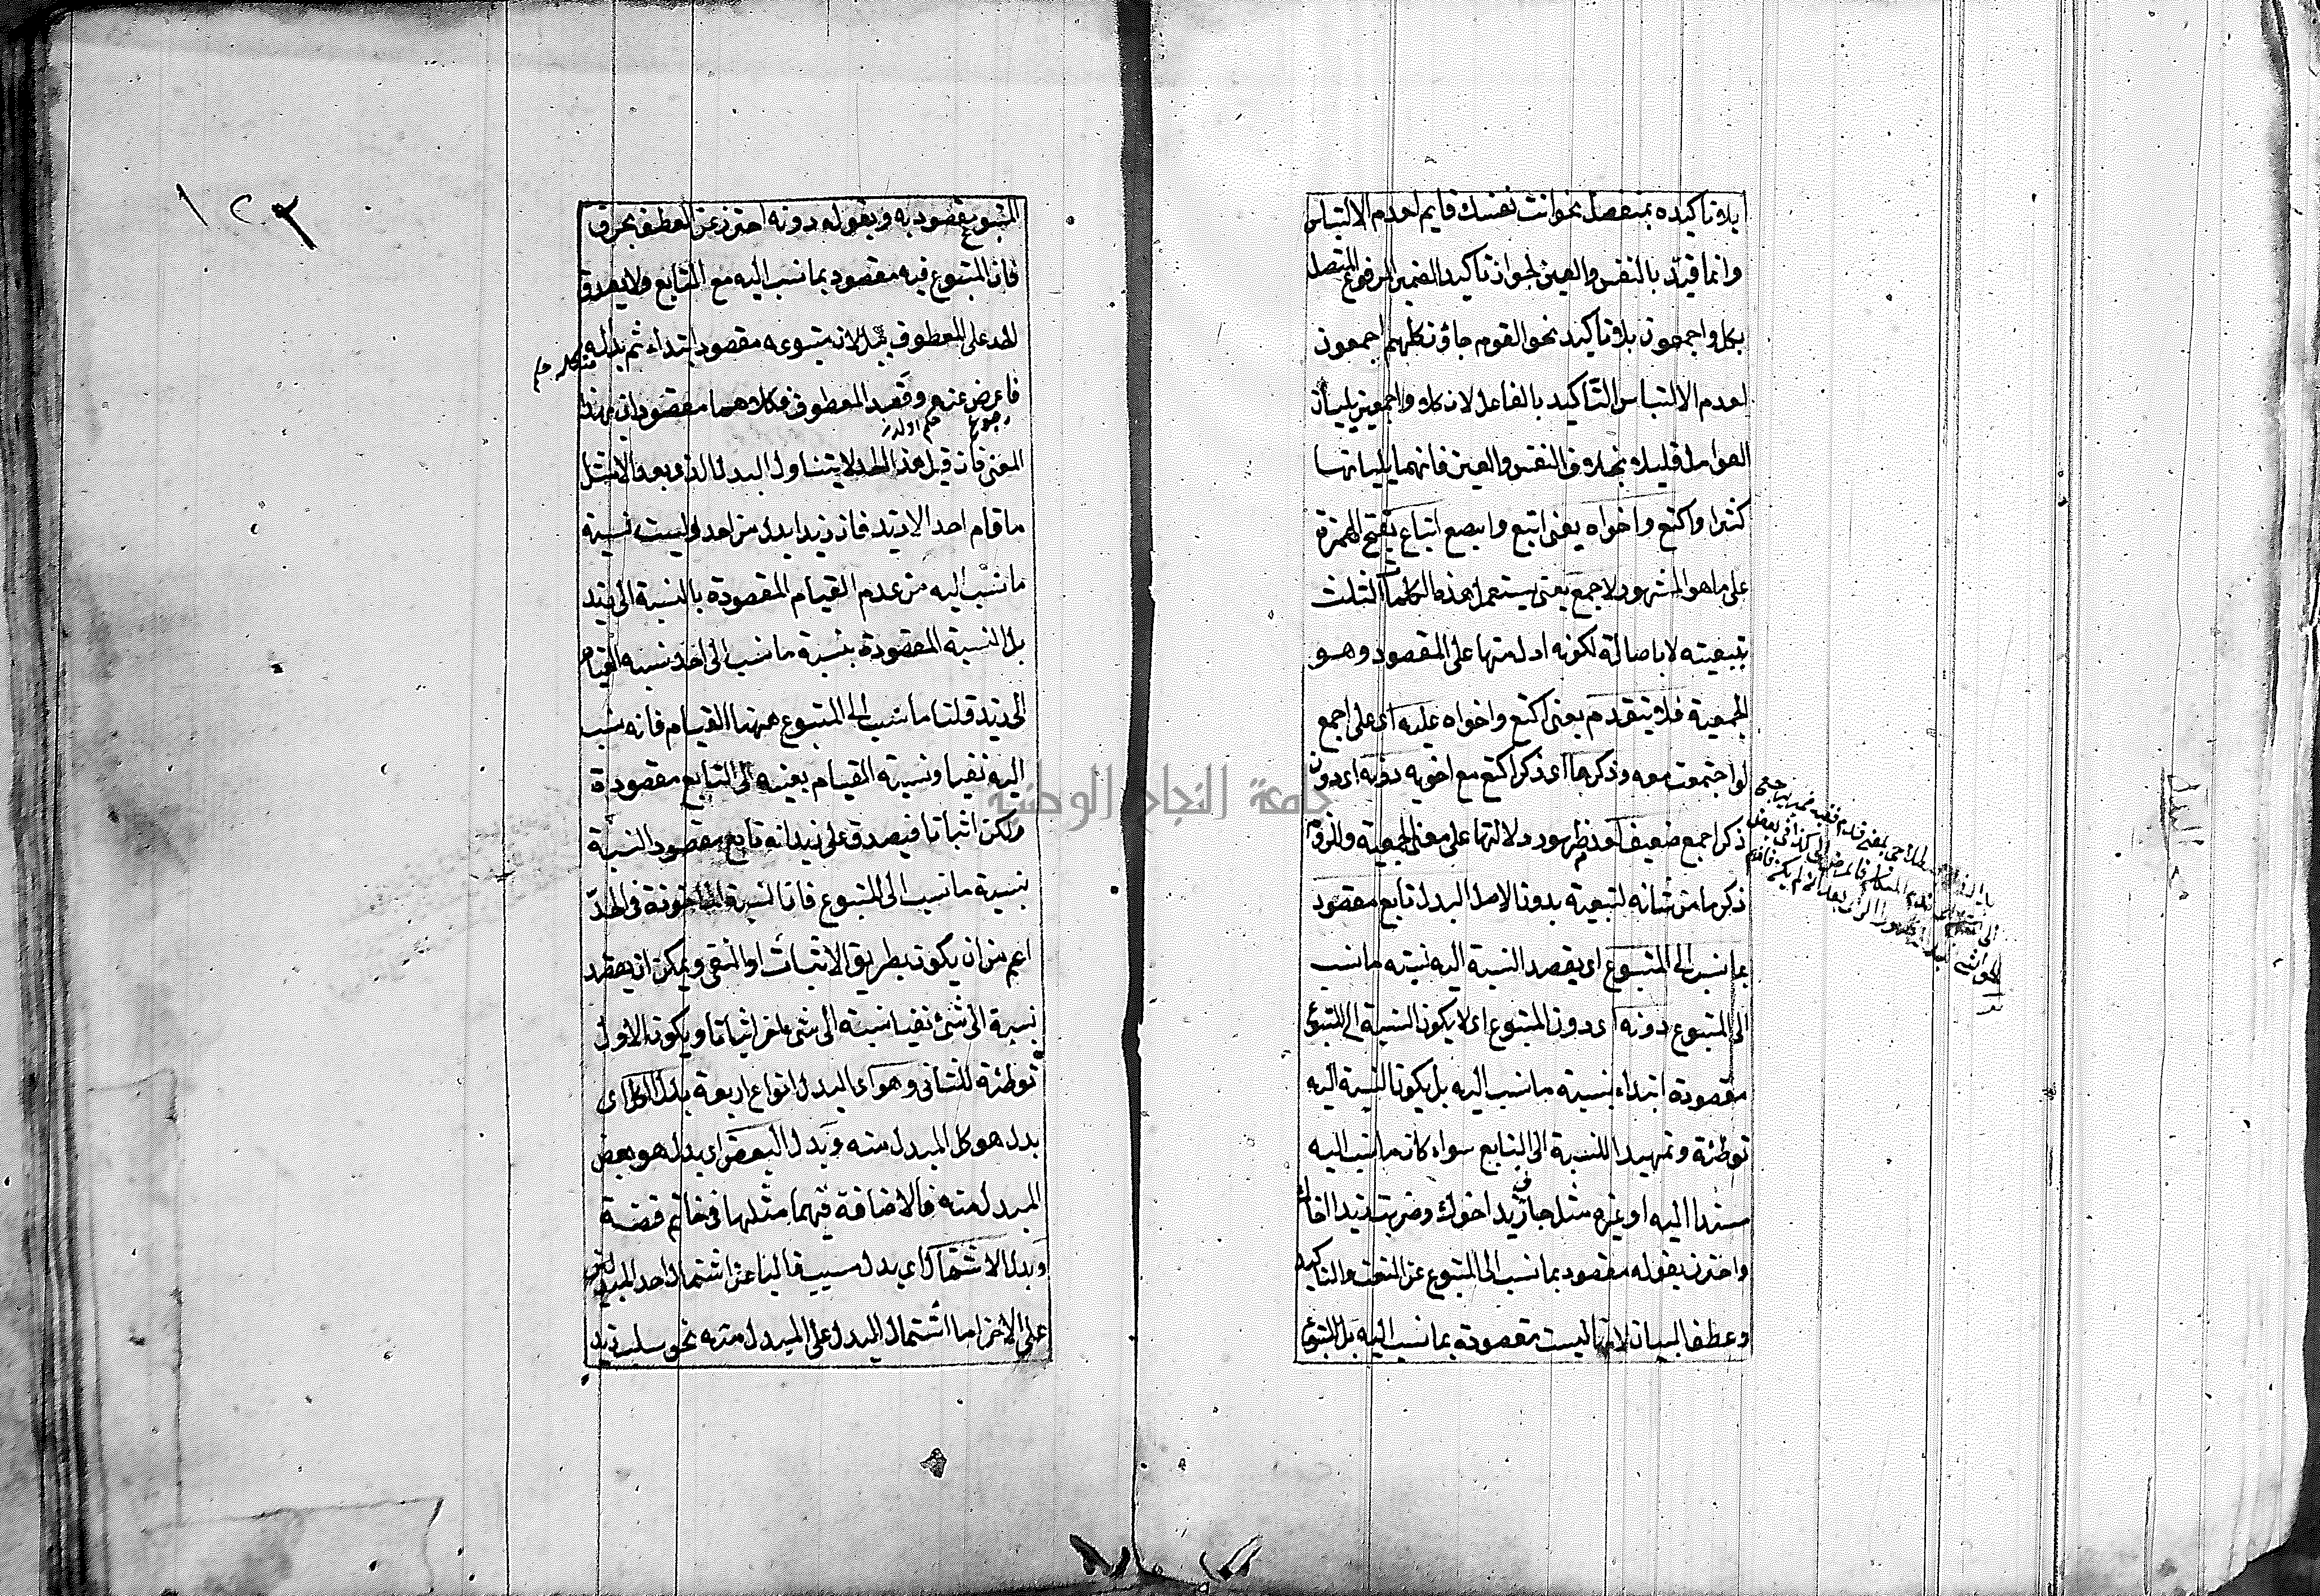 بلا تاكيده بمنفصل نحو انت نفسك قايم لعدم الالتباس
وانما قيد بالنفس والعين لجواز تاكيد الضمير المرفوع المتصل
بكل واجمعون بلا تاكيد نحو القوم جاؤن كلهم اجمعون
لعدم الالتباس التاكيد بالفاعل لان كلا واجمعين يليان
العوامل قليلا بخلاف النفس والعين فانهما يليانها
كثيرا واكتع واخواه يعنى اتبع وابصع اتباع بفتح الهمزة
على ما هو المشهور لاجمع يعنى يستعمل هذه الكلمات الثلث
تبعيته لا باصالة لكونه ادل منها على المقصود وهو
الجمعية فلا يتقدم يعنى اكتع واخواه عليه اى على اجمع
لو اجتمعت معه وذكرها اى ذكر اكتع مع اخويه دونه اى دون
ذكر اجمع ضعيف لعدم ظهور دلالتها على معنى الجمعية ولزوم
ذكر ما من شانه لتبعية بدون الاصل البدل تابع مقصود
بما نسب الى المتبوع اى يقصد النسبة اليه نسبته ما نسب
الى المتبوع دونه اى دون المتبوع اى لا يكون النسبة الى المتبوع
مقصودة ابتداء بنسبة ما نسب اليه بل يكون النسبة اليه
توطئة وتمهيدا للنسبة الى التابع سواء كان ما نسب اليه
مسندا اليه او غيره مثل جاءنى زيد اخوك وضربت زيدا اخاك
واحترز بقوله مقصود بما نسب الى المتبوع عن النعت والتاكيد
وعطف البيان لانها ليست مقصودة بما نسب اليه بل المتبوع
١٢٣
المتبوع مقصود به وبقوله دونه احترز عن العطف بحرف
فان المتبوع فيه مقصود بما نسب اليه مع التابع ولا يصدق
الحد على المعطوف ببل لان متبوعه مقصود ابتداء ثم بدا له
فاعرض عنه وقصد المعطوف فكلاهما مقصودان بهذا
المعنى فان قيل هذا الحد لا يتناول البدل الذى بعد الا مثل
ما قام احد الا زيد فان زيدا بدل من احد وليست نسبة
ما نسب اليه من عدم القيام المقصودة بالنسبة الى زيد
بل النسبة المقصودة بنسبة ما نسب الى احد نسبه القيام
الى زيد قلنا ما نسب الى المتبوع ههنا القيام فانه نسب
اليه نفيا ونسبة القيام بعينه الى التابع مقصودة
ولكن اثباتا فيصدق على زيد انه تابع مقصود النسبة
بنسبة ما نسب الى المتبوع فان النسبة الماخوذة فى الحد
اعم من ان يكون بطريق الاثبات او النفى ويمكن ان يقصد
نسبة الى شئ نفيا نسبته الى شى اخر اثباتا ويكون الاول
توطئة للثانى وهو اى البدل انواع اربعة بدل الكل اى
بدل هو كل المبدل منه وبدل البعض اى بدل هو بعض
المبدل منه فالاضافة فيهما مثلها فى خاتم فضة
وبدل الاشتمال اى بدل مسبب غالبا عن اشتمال احد المبدلين
على الاخر اما اشتمال البدل على المبدل منه نحو سلب زيد
جامعة النجاح الوطنية